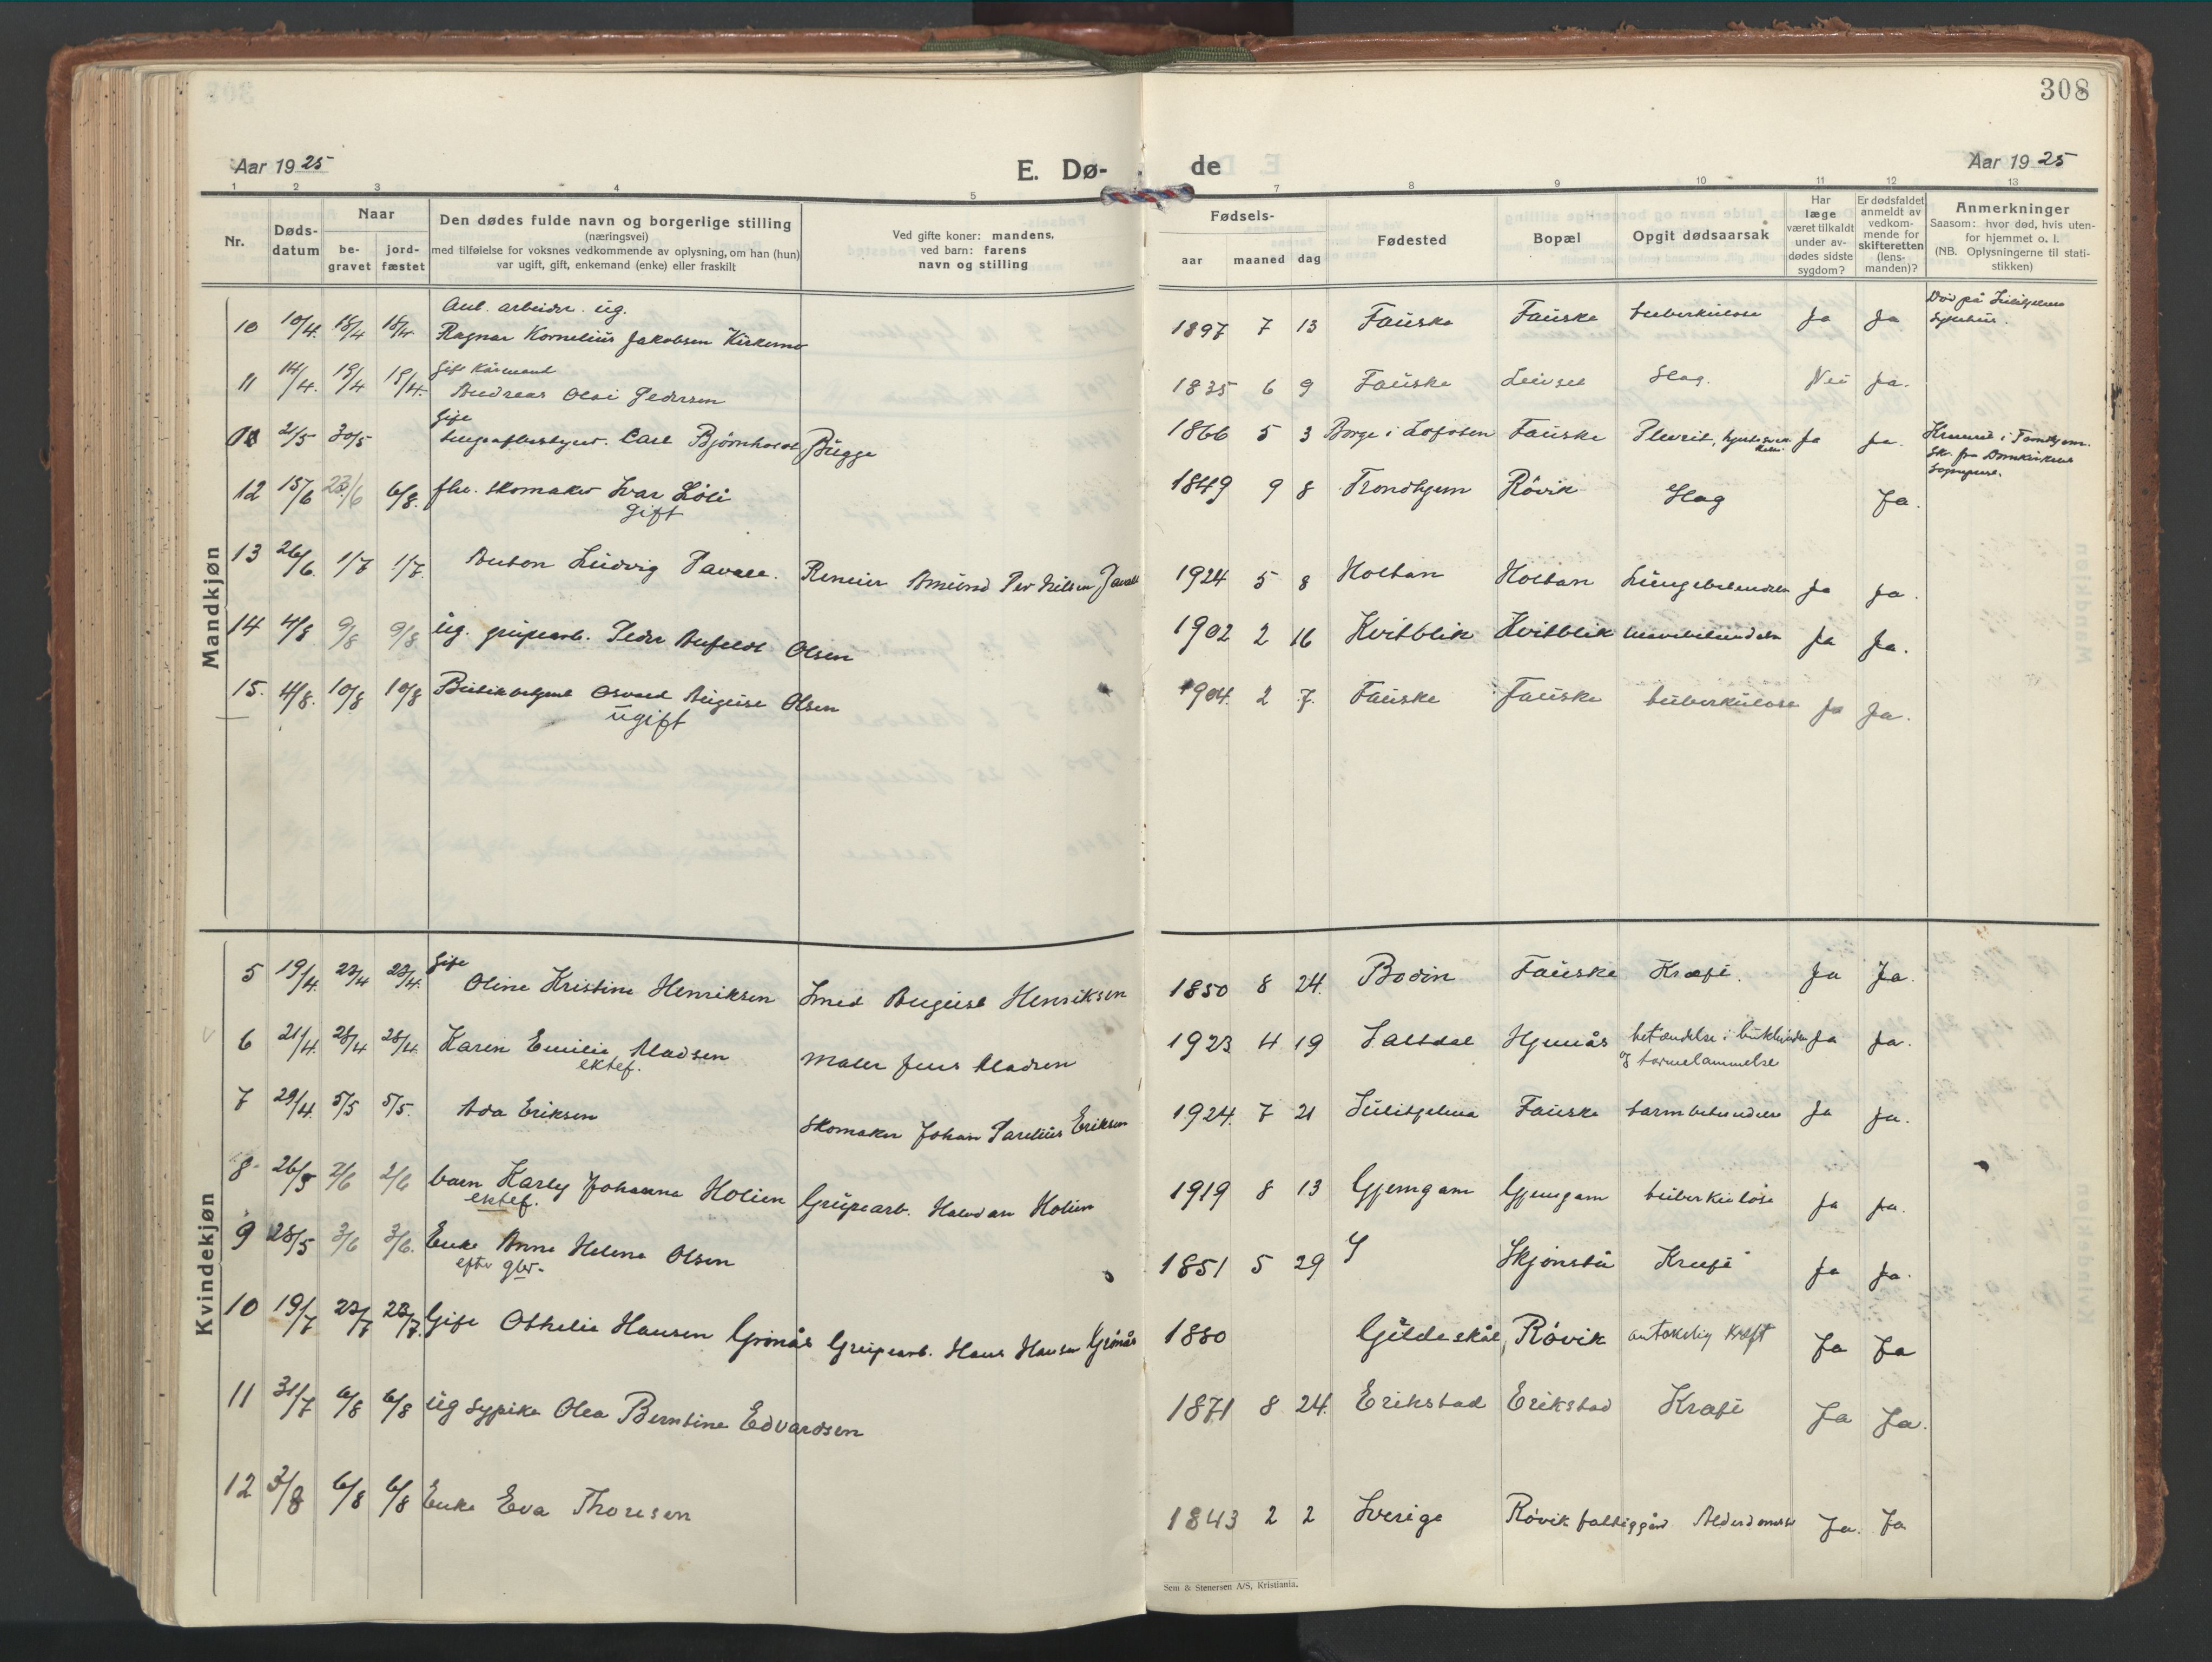 308
Aar 1925
E. Dø-
de
Aar 1925
1 2 3 4 5 7 8 9 10 11 12 13
Nr.
Døds-
datum
Naar
be-
gravet
jord-
fæstet
Den dødes fulde navn og borgerlige stilling
(næringsvei)
med tilføielse for voksnes vedkommende av oplysning, om han (hun)
var ugift, gift, enkemand (enke) eller fraskilt
Ved gifte koner: mandens,
ved barn: farens
navn og stilling
Fødsels-
aar maaned dag
Fødested
Bopæl
Opgit dødsaarsak
Har
læge
været tilkaldt
under av-
dødes sidste
sygdom?
Er dødsfaldet
anmeldt av
vedkom-
mende for
skifteretten
(lens-
manden)?
Anmerkninger
Saasom: hvor død, hvis uten-
for hjemmet o. l.
(NB. Oplysningerne til stati-
stikken)
Mandkjøn
Anl. arbeider. ug.
10 10/4. 18/4 18/4 Ragnar Kornelius Jakobsen Kirkemo 1897 7 13 Fauske Fauske tuberkulose Ja Ja Død på Sulitjelma
Sykehus.
Gift Kårmand
11 14/4. 19/4 19/4. Andreas Olai Pedersen 1835 6 9 Fauske Leivset Slag. Nei Ja.
Gift
2/5 30/5 Telegrafbestyrer. Carl Bjørnholdt Brügge 1866 5 3 Borge i Lofoten Fauske Plevrit, Ja Ja.
12 15/6 23/6 6/8. fhv. skomaker Ivar Löli 1849 9 8 Trondhjem Røvik Slag Ja.
gift
13 26/6. 1/7 1/7. Anton Ludvig Pavall. Reneier Amund Per Nilsen Pavall 1924 5 8 Holtan Holtan Lungebetendelse Ja Ja.
14 4/8 9/8 9/8 ug. grupearb. Peder Anfeldt Olsen 1902 2 16 Kvitblik Kvitblik Ja Ja.
15. 4/8. 10/8 10/8 Butikbetjent Osvald August Olsen 1904. 2 7. Fauske Fauske tuberkulose Ja Ja.
ugift
Kvindekjøn
Gift
5 19/4. 23/4 23/4. Oline Kristine Henriksen Smed August Henriksen 1850 8 24. Bodin Fauske Kræft. Ja Ja.
6 21/4. 28/4 28/4. Karen Emilie Madsen Maler Jens Madsen 1923 4 19 Saltdal Hjemås betændelse i bukhinden Ja Ja.
ektef. og tarmelammelse
7 29/4. 5/5 5/5. Ada Eriksen Skomaker Johan Parelius Eriksen 1924. 7 21 Sulitjelma Fauske tarmbetendelse Ja Ja.
8 26/5 2/6 2/6 barn Karly Johanna Holien Grupearb. Halvdan Holien 1919 8 13 Gjemgam Gjemgam tuberkulose Ja Ja.
ektef.
9 28/5 3/6 3/6. Enke Anna Helena Olsen 1851 5 29 Skjønstå Kræft Ja Ja.
efter gbr.
10 19/7 23/7 23/7. Gift Othelie Hansen Grønås Grupearb. Hans Hansen Grønås 1880 Gildeskål, Røvik antakelig kræft Ja Ja
11 31/7 6/8 6/8 ug sypike Olea Berntine Edvardsen 1871 8 24. Erikstad Erikstad Kræft Ja Ja.
12 3/8 6/8 6/8 Enke Eva Thoresen 1843 2 2 Sverige Røvik fattiggård. Alderdomssv Ja. Ja
Sem & Stenersen A/S, Kristiania.